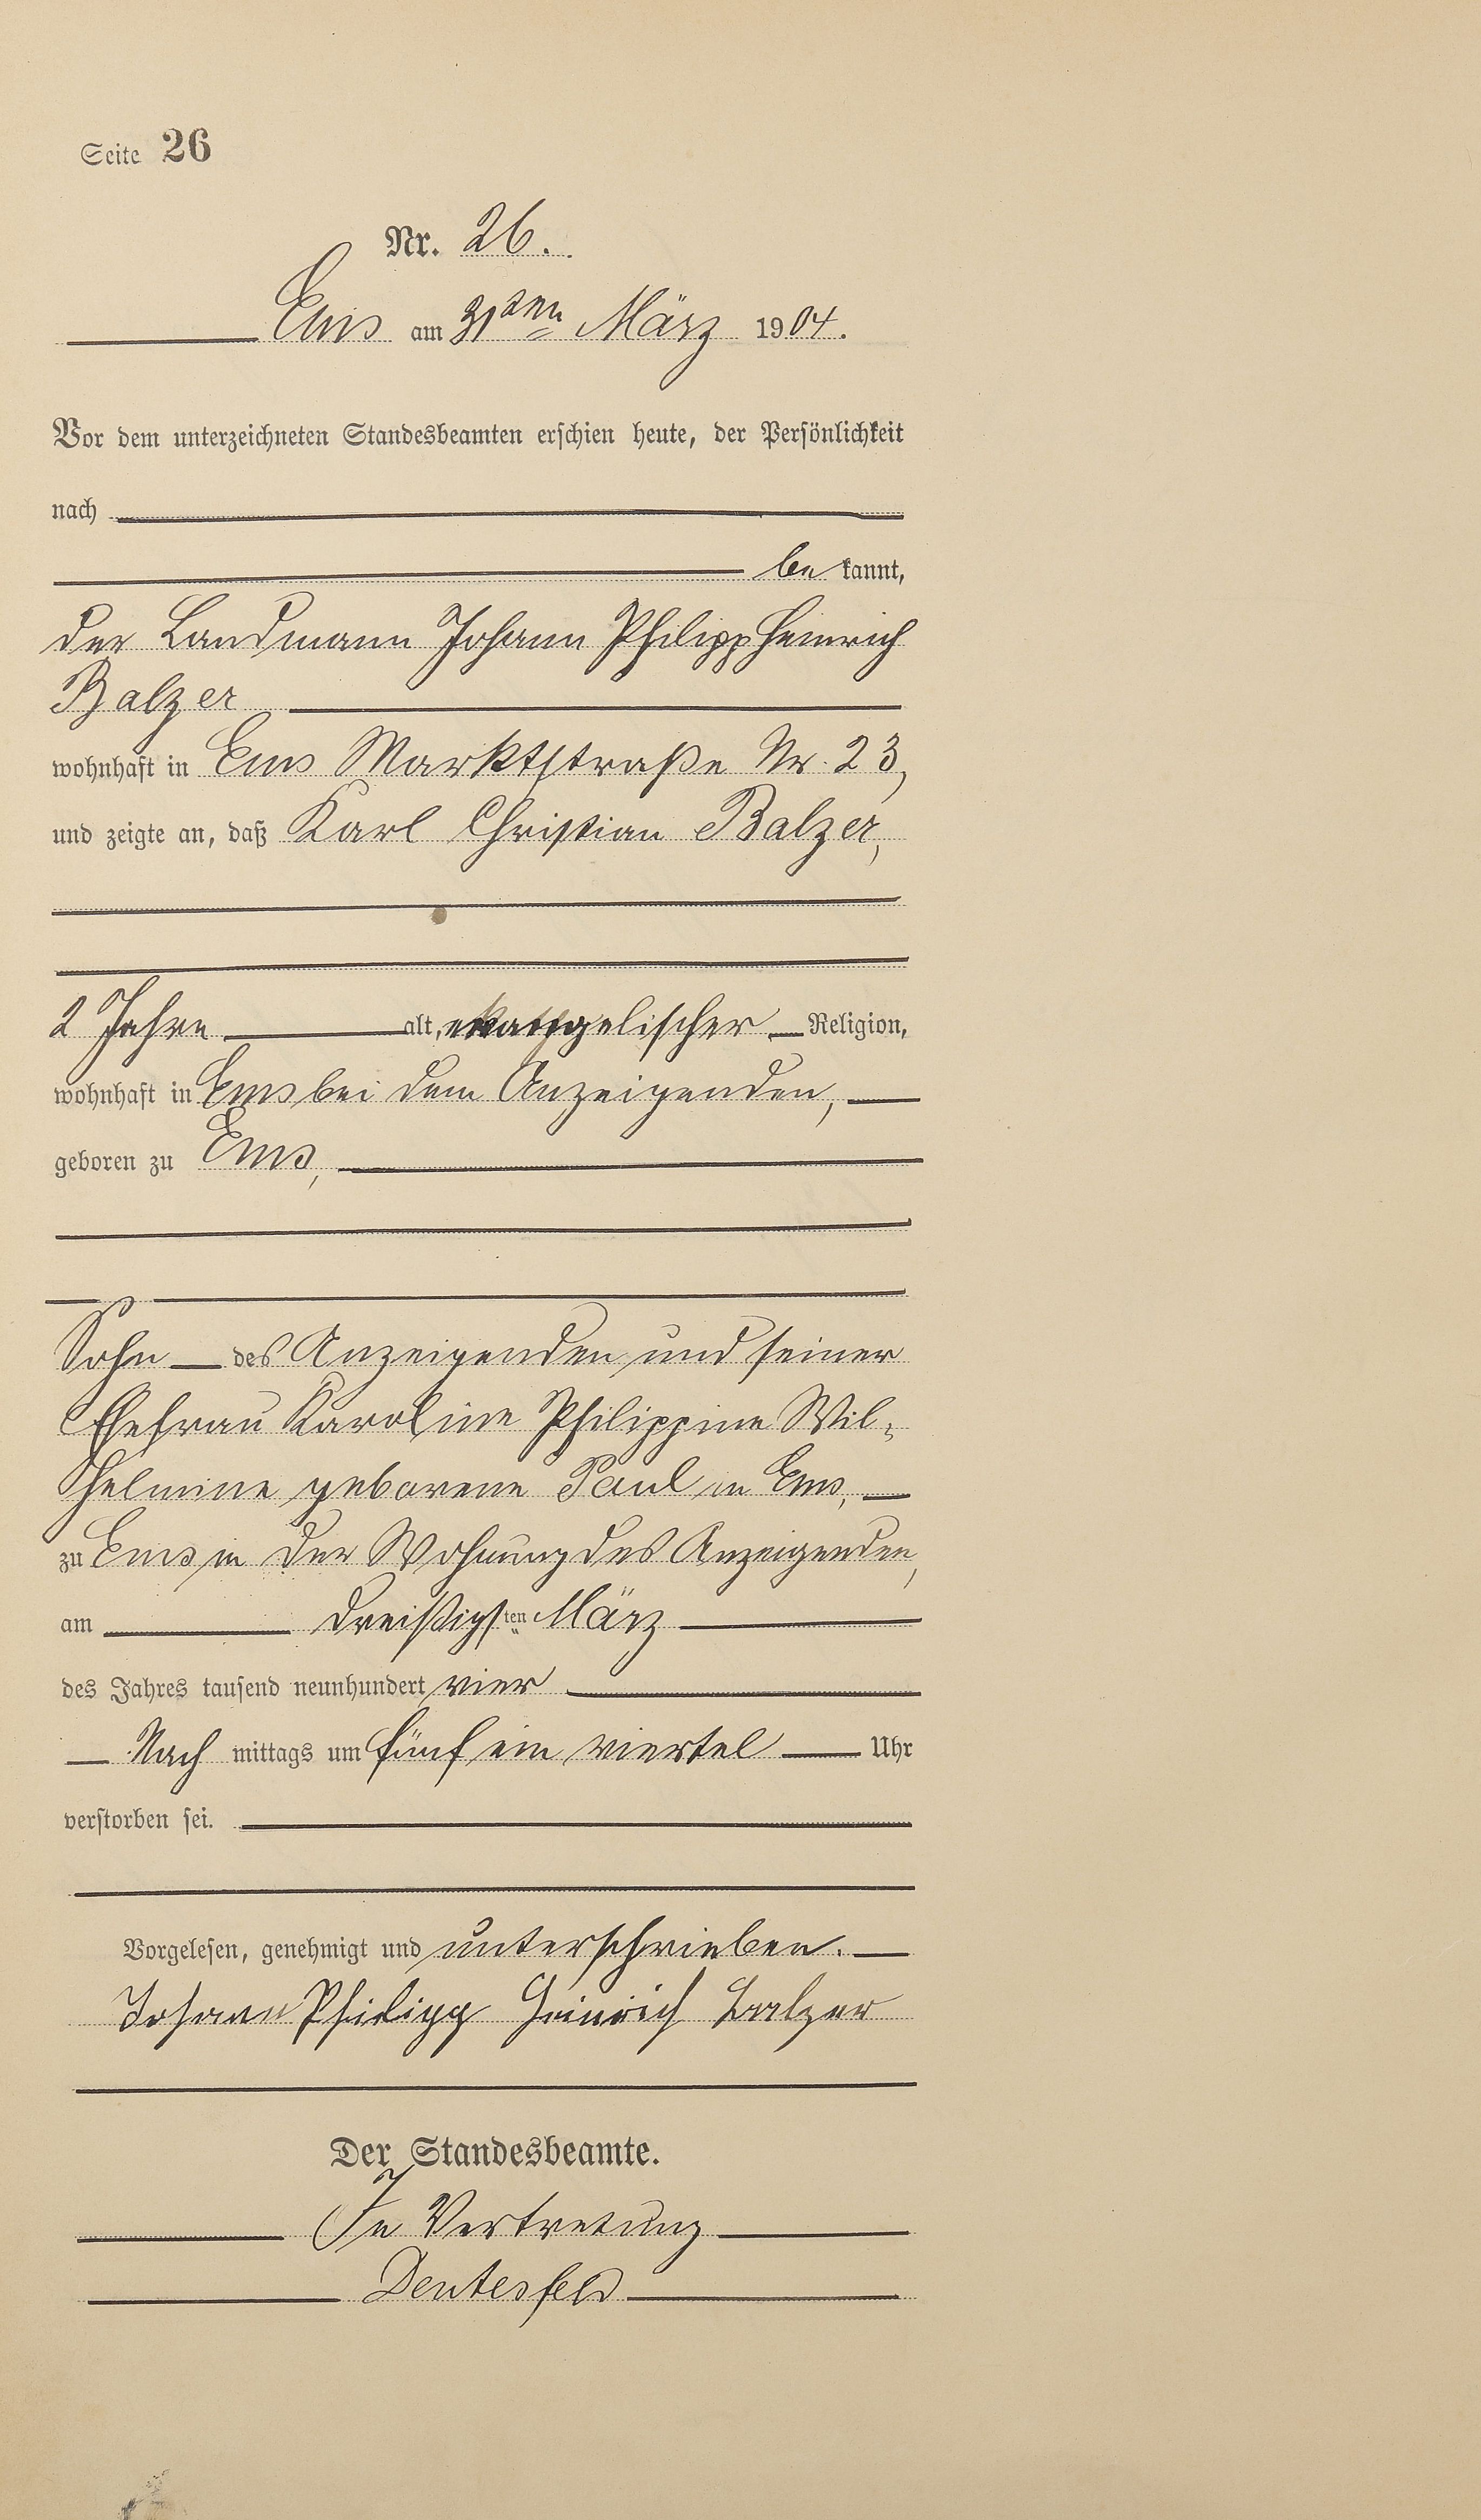 Seite 26
Nr. 26.
Ems am 31ten März 1904.
Vor dem unterzeichneten Standesbeamten erschien heute, der Persönlichkeit
nach
be kannt,
der Landmann Johann Philipp Heinrich
Balzer
wohnhaft in Ems Marktstraße Nr. 23,
und zeigte an, daß Karl Christian Balzer,
2 Jahre alt, evangelischer Religion,
wohnhaft in Ems bei dem Anzeigenden,
geboren zu Ems,
Sohn des Anzeigenden und seiner
Ehefrau Karoline Philippine Wil-
helmine geborene Paul in Ems,
zu Ems in der Wohnung des Anzeigenden,
am dreißigsten März
des Jahres tausend neunhundert vier
Nach mittags um fünf ein viertel Uhr
verstorben sei.
Vorgelesen, genehmigt und unterschrieben.
Johann Philipp Heinrich Balzer
Der Standesbeamte.
In Vertretung